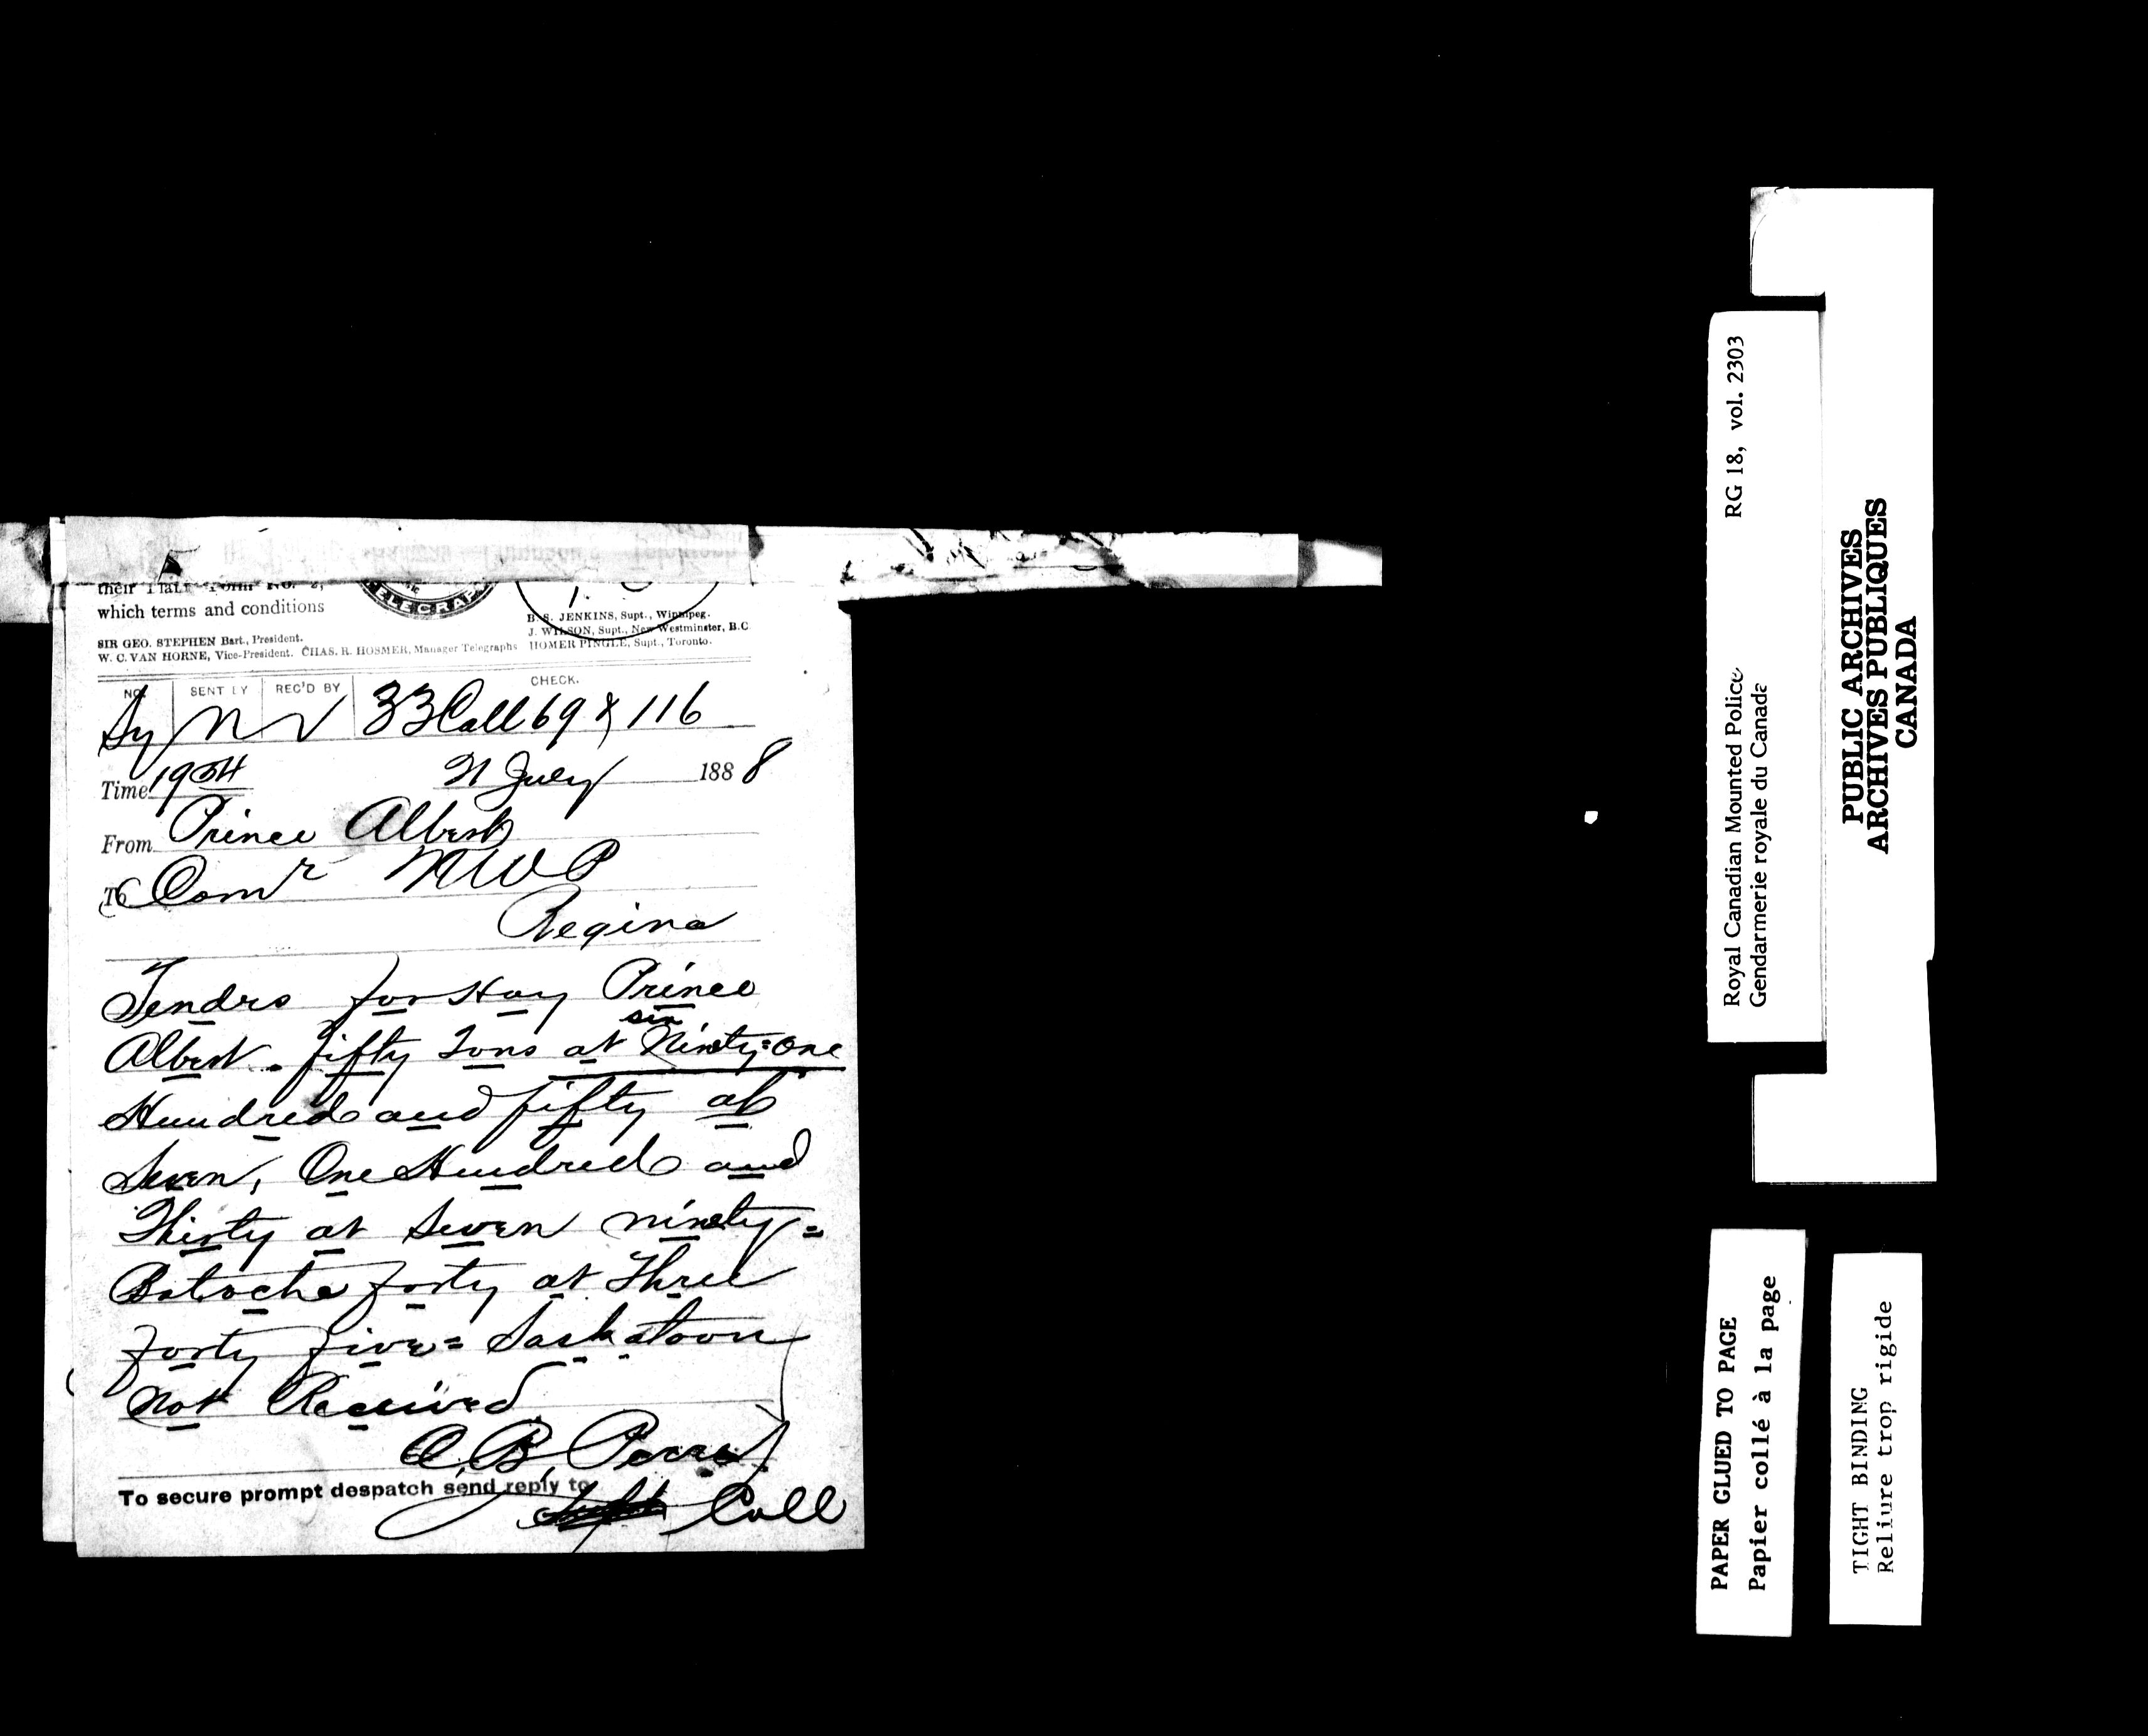 their
which terms and conditions
TELEGRAP
SIR GEO. STEPHEN Bart., President.
W. C. VAN HORNE, Vice-President. CHAS. R. HOSMER, Manager Telegraphs
B. S. JENKINS, Supt., Winnipeg.
J. WILSON, Supt., New Westminster, B.C
HOMER PINGLE, Supt., Toronto.
NO. SENT BY REC'D BY CHECK.
Sy N 33 Coll 69 & 116
Time 19 July 188 8
From Prince Albert
To Comr NWP
Regina
Tendrs for Hay Prince
six
Albert. fifty Tons at Ninety=one
Hundred and fifty at
Seven, One Hundred and
Thirty at Seven ninety=
Batoche forty at Three
forty five= Saskatoon
not Received
To secure prompt despatch send reply to
Coll
RG 18, vol. 2303
Royal Canadian Mounted Police
Gendarmerie royale du Canada
PUBLIC ARCHIVES
ARCHIVES PUBLIQUES
CANADA
PAPER GLUED TO PAGE
Papier collé à la page
TIGHT BINDING
Reliure trop rigide